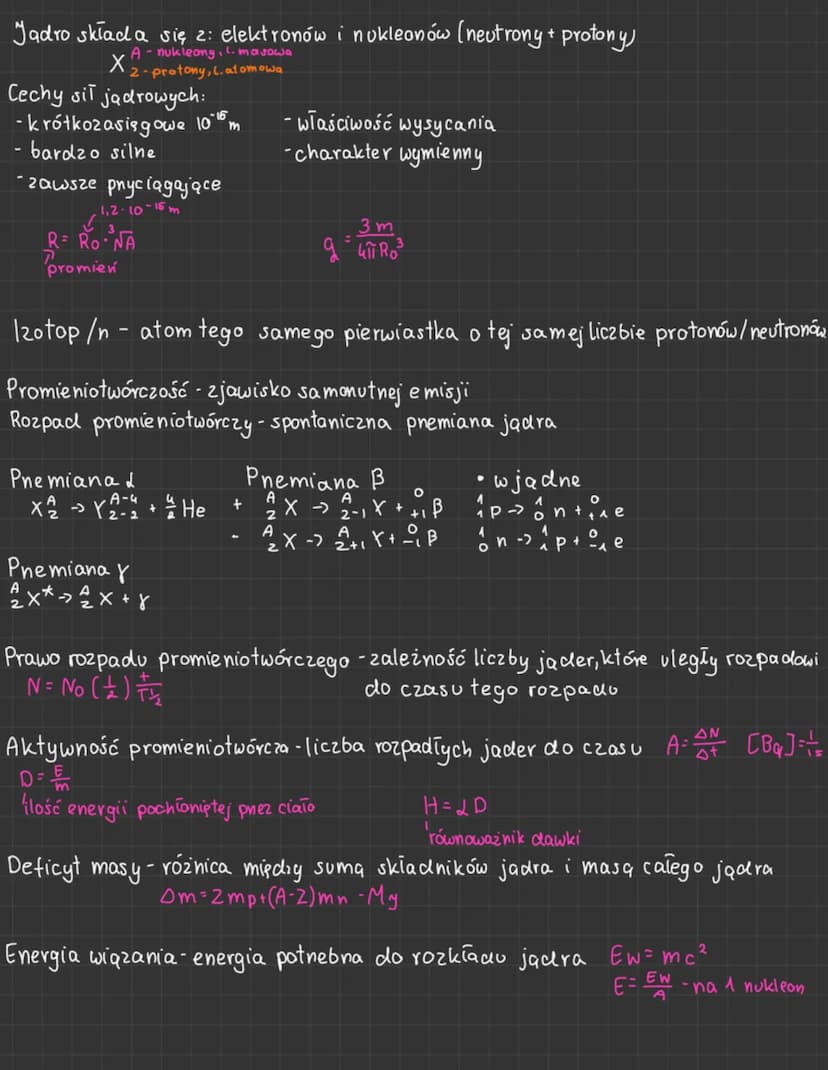 Jądro składa się z: elektronów i nukleonów (neutrony + protony)
X A - nukleony, l. masowa
Z - protony, l. atomowa
Cechy sił jądrowych:
- krótkozasięgowe 10⁻¹⁵ m - właściwość wysycania
- bardzo silne - charakter wymienny
- zawsze przyciągające
1,2·10⁻¹⁵ m
R = R₀·³√A q = 3m/4πR₀³
promień
Izotop/n - atom tego samego pierwiastka o tej samej liczbie protonów/neutronów
Promieniotwórczość - zjawisko samorzutnej emisji
Rozpad promieniotwórczy - spontaniczna przemiana jądra
Przemiana α Przemiana β • w jądrze
X A Z → Y A-4 Z-2 + 4 2 He + A Z X → A Z-1 Y + 0 +1 β 1 1 p → 1 0 n + 0 +1 e
- A Z X → A Z+1 Y + 0 -1 β 1 0 n → 1 1 p + 0 -1 e
Przemiana γ
A Z X* → A Z X + γ
Prawo rozpadu promieniotwórczego - zależność liczby jąder, które uległy rozpadowi
N = N₀ (1/2) t/T½ do czasu tego rozpadu
Aktywność promieniotwórcza - liczba rozpadłych jąder do czasu A = ΔN/Δt [Bq] = 1/1s
D = E/m
ilość energii pochłoniętej przez ciało H = αD
równoważnik dawki
Deficyt masy - różnica między sumą składników jądra i masą całego jądra
Δm = Zmp + (A-Z)mn - Mj
Energia wiązania - energia potrzebna do rozkładu jądra Ew = mc²
E = Ew/A - na 1 nukleon